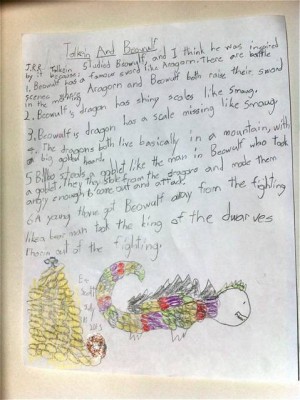 Tolkein And Beowulf
J.R.R Tolkein studied Beowulf, and I think he was inspired
by it because:
1. Beowulf has a famous sword like Aragorn. There are battle
scenes where Aragorn and Beowulf both raise their sword
in the
2. Beowulf's dragon has shiny scales like Smaug.
3. Beowulf's dragon has a scale missing like Smaug.
4. The dragons both live basically in a mountain, with
a big hoard.
5. Bilbo steals a goblet like the man in Beowulf who took
a goblet. They from the dragons and made them
angry enough to come out and attack.
6. A young thane got Beowulf away from the fighting
like a bear man took the king of the dwarves
Thorin out of the fighting.
By
Scott
July
2013